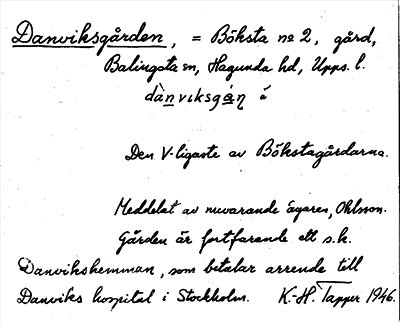 Danviksgården, = Böksta no 2, gård,
Balingsta sn, Hagunda hd, Upps. l.
dànviksgáṇ
Den V-ligaste av Bökstagårdarna.
Meddelat av nuvarande ägaren, Ohlsson.
Gården är fortfarande ett s.k.
Danvikshemman, som betalar arrende till
Danviks hospital i Stockholm. K.-H. Tapper 1946.